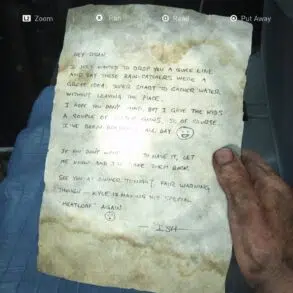 Zoom Pan Read Put Away
HEY SUSAN,
I JUST WANTED TO DROP YOU A QUICK LINE
AND SAY THESE RAIN-CATCHERS WERE A
GREAT IDEA. SUPER SMART TO GATHER WATER
WITHOUT LEAVING THE PLACE.
I HOPE YOU DON'T MIND, BUT I GAVE THE KIDS
A COUPLE OF WATER GUNS. SO OF COURSE
I'VE BEEN ALL DAY
IF YOU DON'T WANT TO HAVE IT, LET
ME KNOW AND I'LL THEM BACK.
SEE YOU AT DINNER TONIGHT. FAIR WARNING,
THOUGH — KYLE IS MAKING HIS SPECIAL
"MEATLOAF" AGAIN.
— ISH